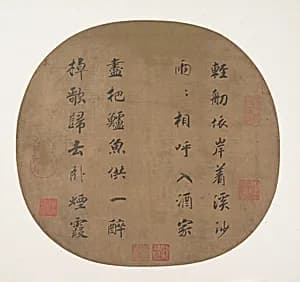 輕舠依岸着溪沙
兩〻相呼入酒家
盡把鱸魚供一醉
棹歌歸去卧煙霞